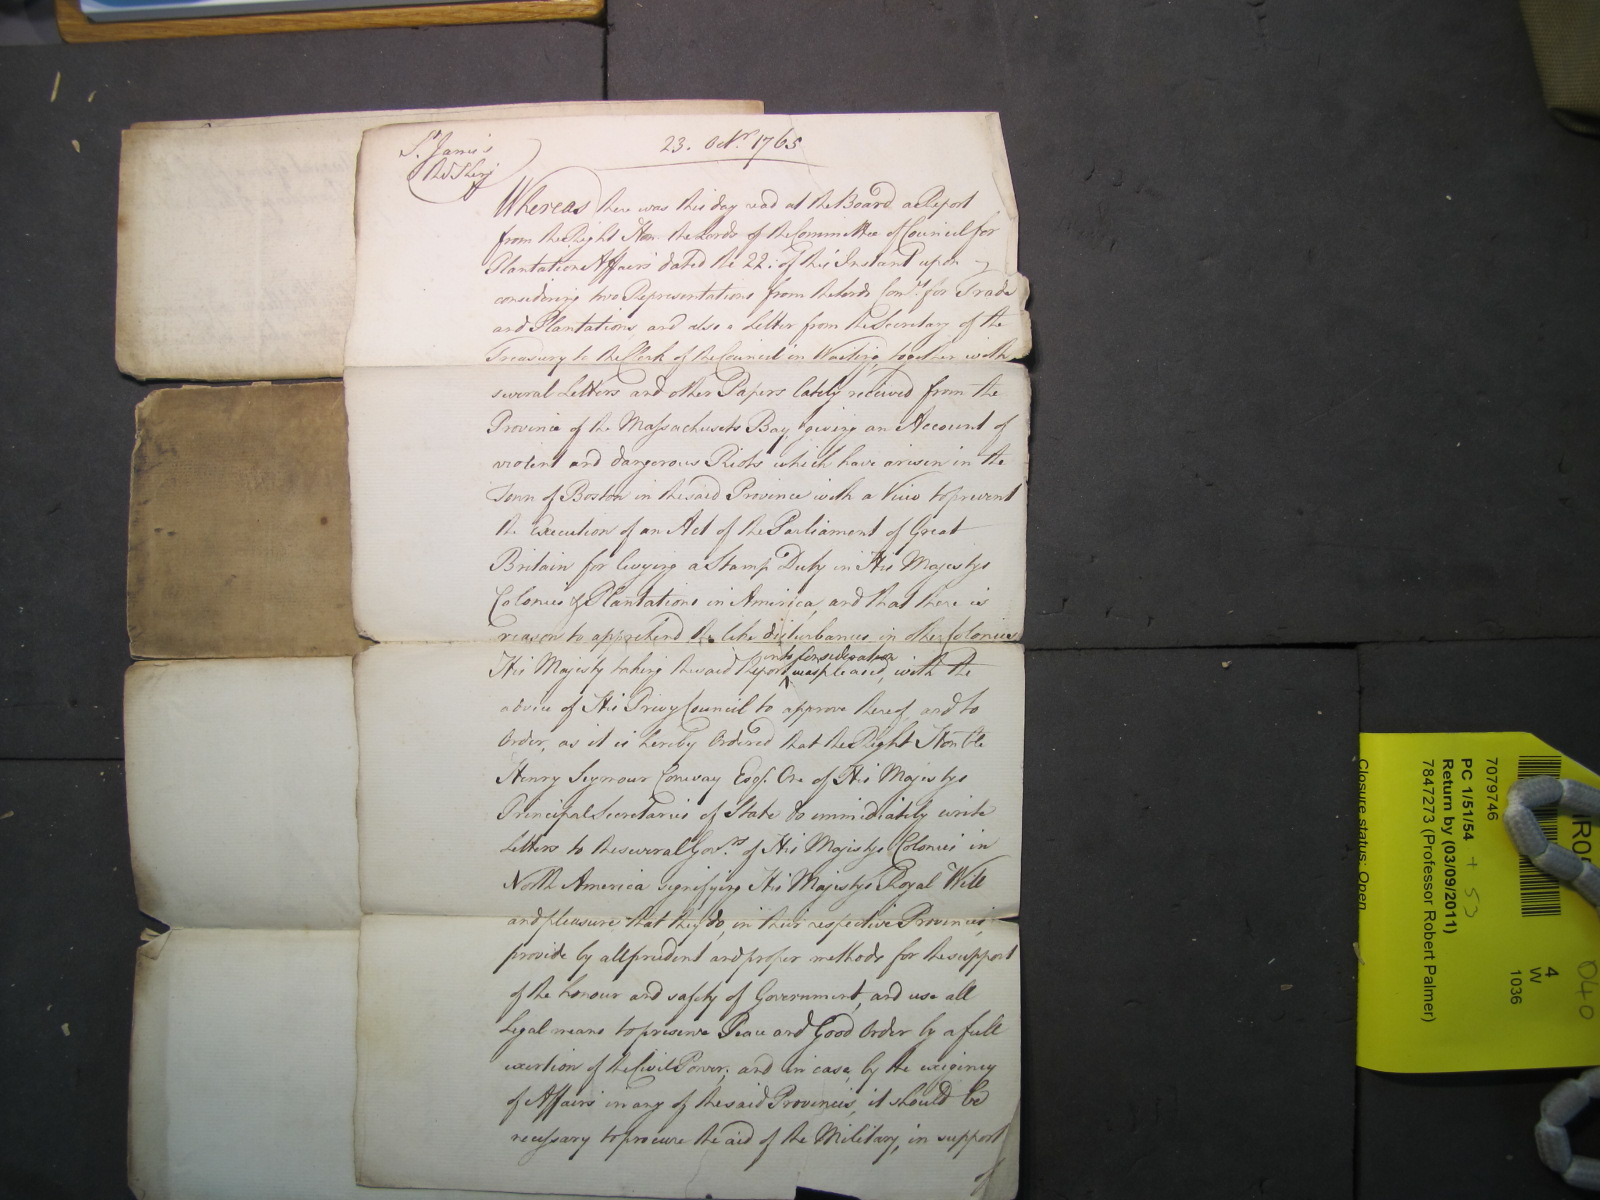 St. James's
23. Octr. 1765
Whereas there was this day read at the Board a Report
from the Right Hon. the Lords of the Committee of Council for
Plantation Affairs dated the 22d. of this Instant upon
considering two Representations from the Lords Comrs. for Trade
and Plantations and also a Letter from the Secretary of the
Treasury to the Clerk of the Council in Waiting, together with
several Letters and other Papers lately received from the
Province of the Massachusets Bay, giving an Account of
violent and dangerous Riots which have arisen in the
Town of Boston in the said Province with a View to prevent
the Execution of an Act of the Parliament of Great
Britain for levying a Stamp Duty in His Majestys
Colonies & Plantations in America, and that there is
reason to apprehend the like disturbances in other Colonies
His Majesty taking the said Report into Consideration was pleased, with the
advice of His Privy Council to approve thereof, and to
Order, as it is hereby Ordered that the Right Honble
Henry Seymour Conway Esqr. One of His Majestys
Principal Secretaries of State do immediately write
Letters to the several Govrs. of His Majestys Colonies in
North America signifying His Majestys Royal Will
and pleasure that they do, in their respective Provinces,
provide by all prudent and proper methods for the support
of the honour and safety of Government, and use all
Legal means to preserve Peace and Good Order by a full
exertion of the Civil Power; and in case, by the exigency
of Affairs in any of the said Provinces, it should be
necessary to procure the aid of the Military, in support
of
7079746
PC 1/51/54 + 53
Return by (03/09/2011)
7847273 (Professor Robert Palmer)
Closure status: Open
4
W
1036
040